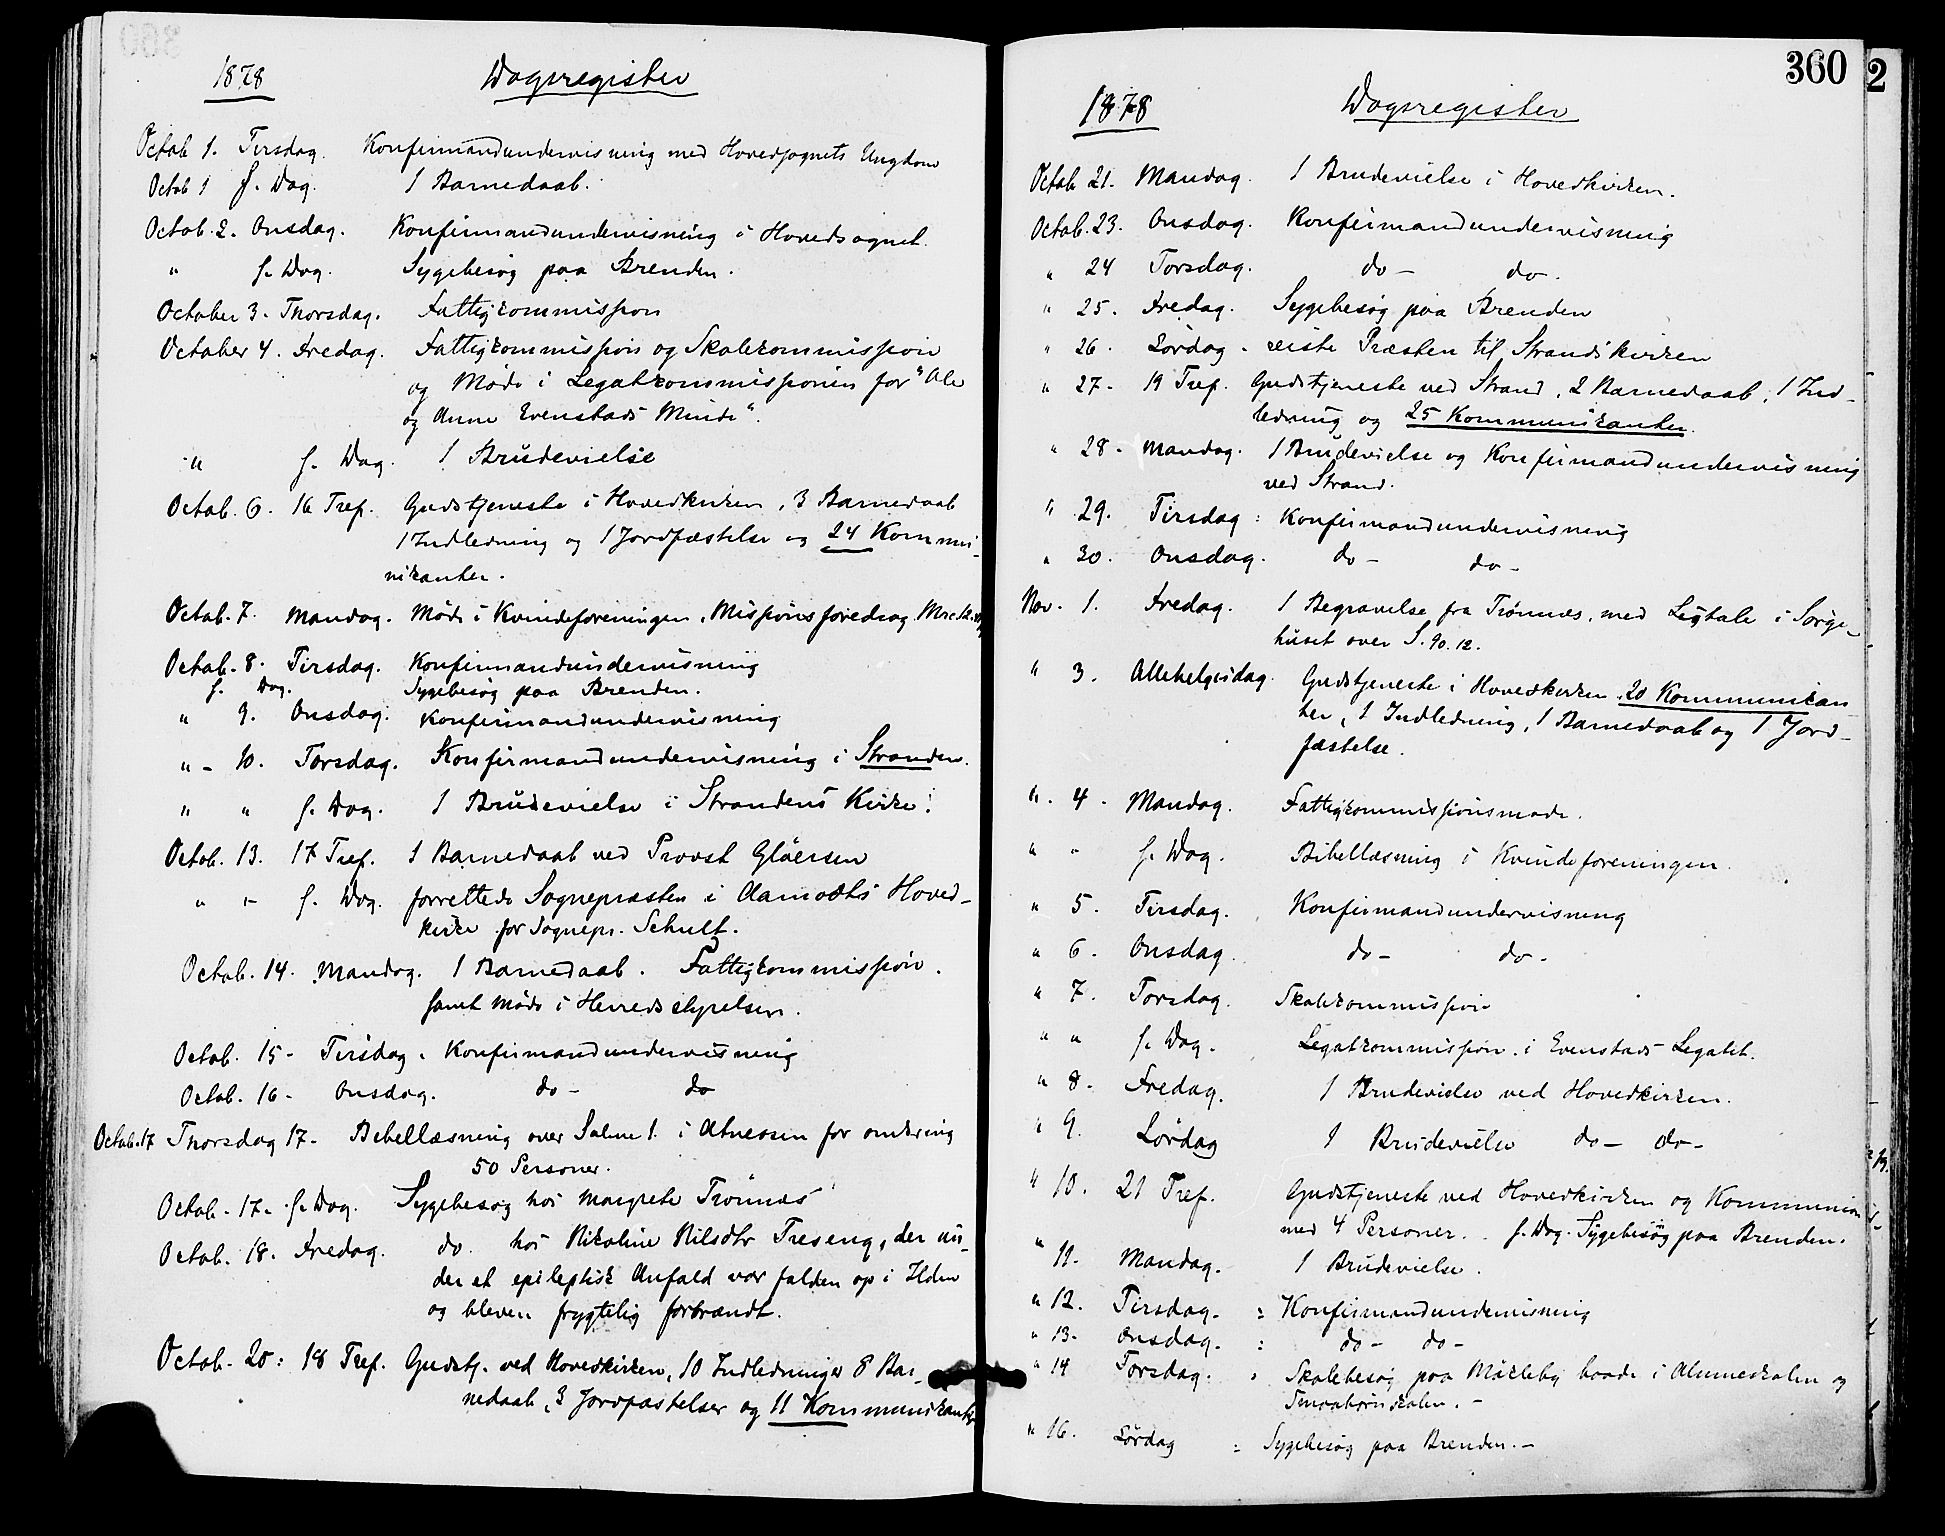 1878 Dagsregister
Octob 1. Tirsdag. Konfirmandundervisning med Hovedsognets Ungdom
Octob 1 s. Dag. 1 Barnedaab.
Octob. 2. Onsdag. Konfirmandundervisning i Hovedsognet.
" s. Dag. Sygebesøg paa Brenden.
October 3. Thorsdag. Fattigkommission
October 4. Fredag. Fattigkommission og Skolekommission
og Møde i Legatkommissionen for "Ole
og Anne Evenstads Minde".
" s. Dag. 1 Brudevielse
Octob. 6. 16 Tref. Gudstjeneste i Hovedkirken, 3 Barnedaab
1 Indledning og 1 Jordfæstelse og 24 Kommu-
nikanter.
Octob. 7. Mandag. Møde i Kvindeforeningen. Missionsforedrag.
Octob. 8. Tirsdag. Konfirmandundervisning
s. Dag. Sygebesøg paa Brenden.
" 9. Onsdag. Konfirmandundervisning
" - 10. Torsdag. Konfirmandundervisning i Stranden.
" " s. Dag. 1 Brudevielse i Strandens Kirke.
Octob. 13. 17 Tref. 1 Barnedaab ved Provst Gløersen
" " s. Dag. forrettede Sognepræsten i Aamodts Hoved-
kirke for Sognepr. Schult.
Octob. 14. Mandag. 1 Barnedaab. Fattigkommission.
samt Møde i Herredsstyrelsen.
Octob. 15- Tirsdag. Konfirmandundervisning
Octob. 16- Onsdag. do- do
Octob. 17 Thorsdag 17- Bibellæsning over Salme 1. i Atneosen for omkring
50 Personer.
Octob. 17. s. Dag. Sygebesøg hos Margrete Trønnæs
Octob. 18. Fredag. do. hos Nikoline Nilsdtr Treseng, der un-
der et epileptisk Anfald var falden op i Ilden
og bleven frygtelig forbrændt.
Octob. 20: 18 Tref. Gudstj. ved Hovedkirken, 10 Indledninger 8 Bar-
nedaab, 3 Jordfæstelser og 11 Kommunikanter
360
2
1878 Dagsregister
Octob 21. Mandag. 1 Brudevielse i Hovedkirken.
Octob. 23. Onsdag. Konfirmandundervisning
" 24 Torsdag. do- do-
" 25. Fredag. Sygebesøg paa Brenden
" 26. Lørdag. reiste Præsten til Strands kirken
" 27. 19 Tref. Gudstjeneste ved Strand, 2 Barnedaab, 1 Ind-
ledning og 25 Kommunikanter.
" 28. Mandag. 1 Brudevielse og Konfirmandundervisning
ved Strand.
" 29. Tirsdag: Konfirmandundervisning
" 30. Onsdag. do- do-
Nov. 1. Fredag. 1 Begravelse fra Trønnæs, med Ligtale i Sørge-
huset over S. 90.12.
" 3. Allehelgesdag. Gudstjeneste i Hovedkirken. 20 Kommunikan
ter, 1 Indledning, 1 Barnedaab og 1 Jord-
fæstelse.
" 4. Mandag. Fattigkommissionsmøde.
" " s. Dag. Bibellæsning i Kvindeforeningen.
" 5. Tirsdag. Konfirmandundervisning
" 6. Onsdag. do- do-
" 7. Torsdag. Skolekommission
" " s. Dag. Legatkommission i Evenstads Legatet.
" 8. Fredag. 1 Brudevielse ved Hovedkirken.
" 9. Lørdag 1 Brudevielse do- do-
" 10. 21 Tref. Gudstjeneste ved Hovedkirken og Kommunion
med 4 Personer. s. Dag. Sygebesøg paa Brenden.
" 11. Mandag. 1 Brudevielse.
" 12. Tirsdag. : Konfirmandundervisning
" 13. Onsdag. : do- do-
" 14 Torsdag. : Skolebesøg paa Mykleby baade i Almueskolen og
Smaabørnskolen.-
" 16. Lørdag : Sygebesøg paa Brenden.-